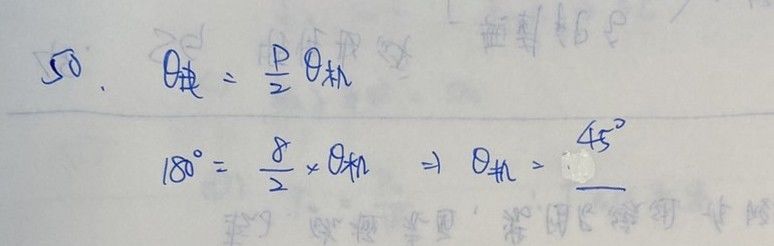 50. θ电 = P/2 θ机
180° = 8/2 × θ机 ⇒ θ机 = 45°